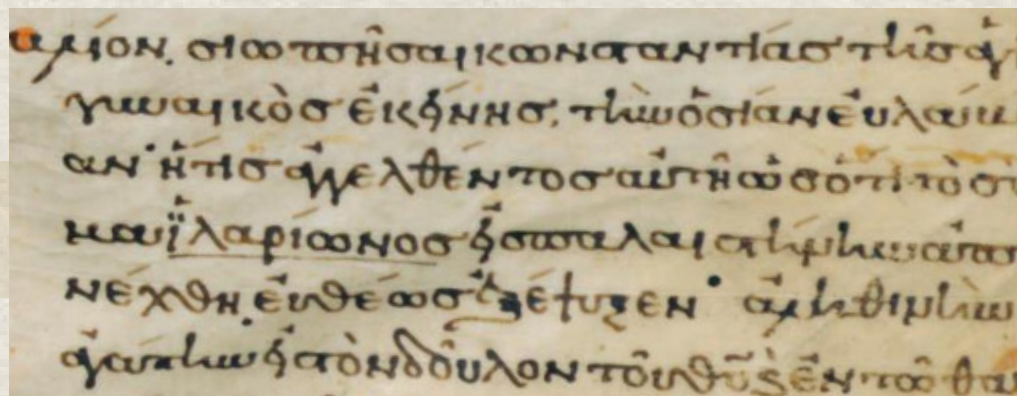 σιωπῆσαι κωνσταντίας τῆς ἁγί
γυναικὸς ἐκείνης, τὴν ὁσίαν εὐλάβει
αν· ἥτις ἀγγελθέντος αὐτῆ ὡς ὅτι τὸ σῶ
μα ϊλαρίωνος εἰς παλαιστίνην ἀπη
νέχθη. εὐθέως ἐξέψυξεν· ἀληθινὴν
ἀγάπην εἰς τὸν δοῦλον τοῦ θῦ καὶ ἐν τῶ θα